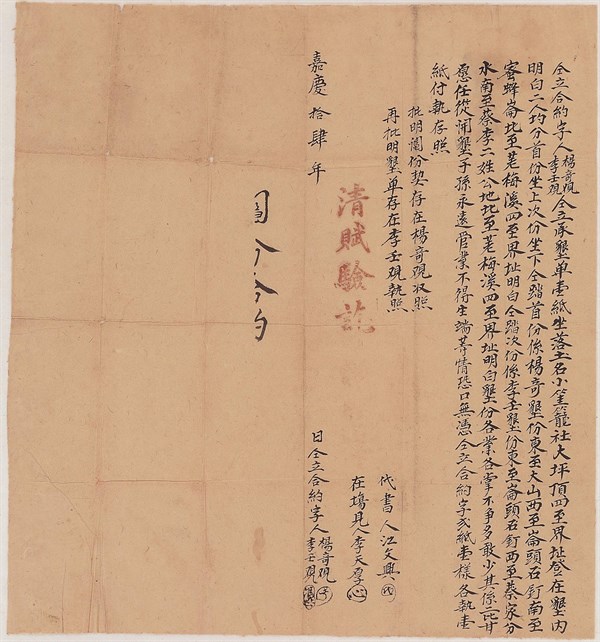 仝立合約字人楊奇覌李壬覌仝立承墾单壹紙坐落土名小篁籠社大坪頂四至界址登在墾內
明白二人均分首份坐上次份坐下仝踏首份係楊奇墾份東至大山西至崙頭石釘南至
蜜蜂崙北至荖梅溪四至界址明白仝踏次份係李壬墾份東至崙頭石釘西至蔡家分
水南至蔡李二姓公地北至荖梅溪四至界址明白墾份各業各掌不爭多敢少其係二比甘
愿任從開墾子孫永遠管業不得生端等情恐口無憑仝立合約字弍紙壹樣各執壹
紙付執存照
批明鬮份契存在楊奇覌收照
再批明墾单存在李壬覌執照
代書人江文興
在塲見人李天厚
清賦驗訖
嘉慶拾肆年
日仝立合約字人楊奇覌李壬覌